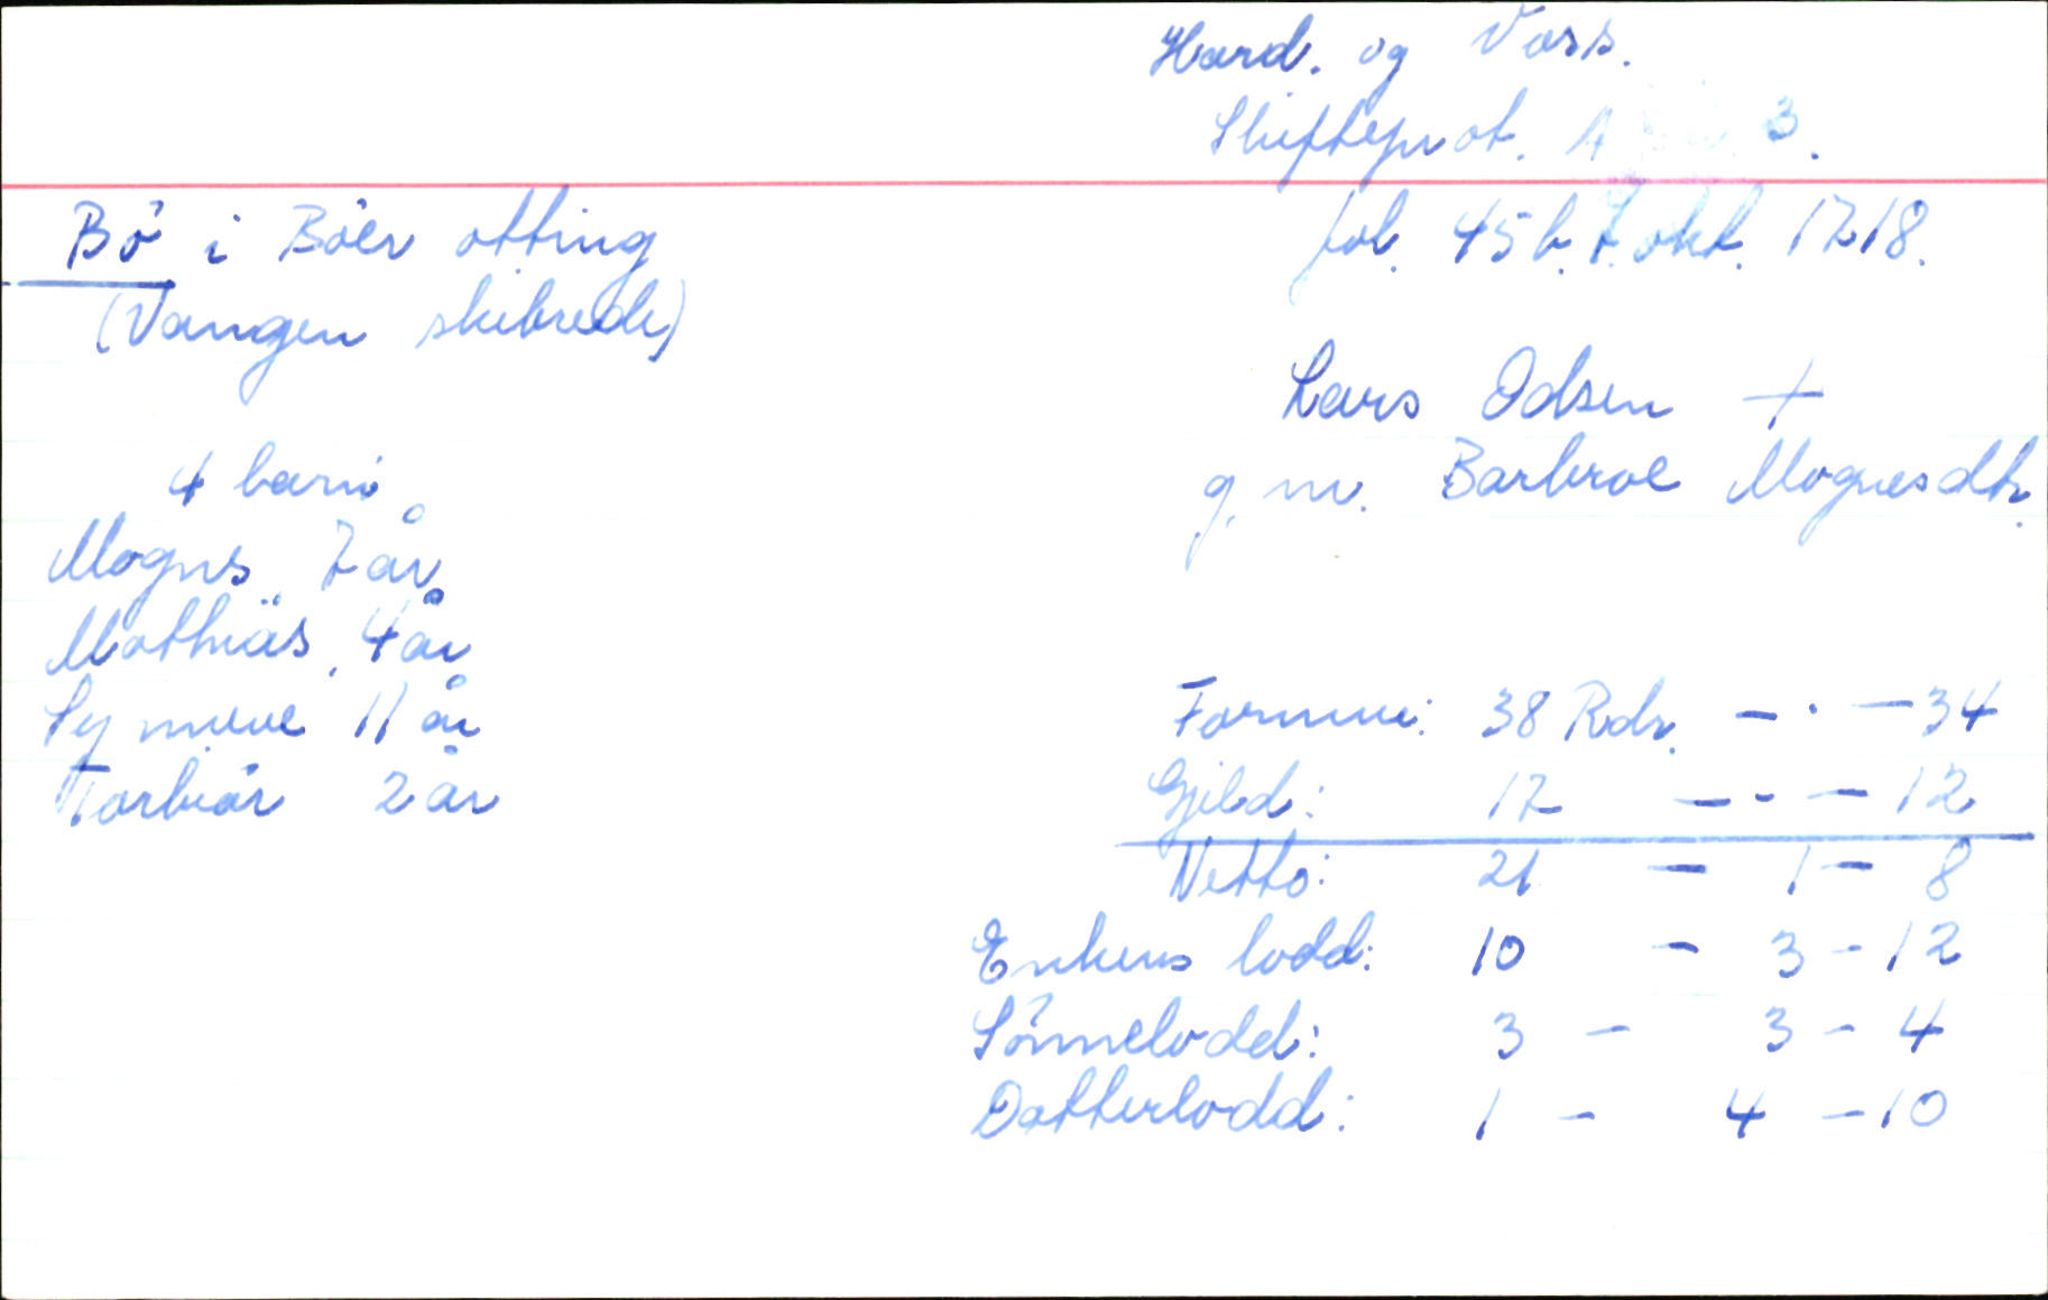 Hard. og Voss.
Skifteprot. A 3.
Bö i Böer otting
fol. 45 b. 7. okt. 1718.
(Vangen skibrede)
Lars Odsen +
g. m. Barbroe Mognesdtr.
4 barn:
Mogns 7 år
Mathias, 4 år
Synneve 11 år
Torbiör 2 år
Formue: 38 Rdr. - · - 34
Gjeld: 17 - - - 12
Netto: 21 - 1 - 8
Enkens lodd: 10 - 3 - 12
Sönnelodd: 3 - 3 - 4
Datterlodd: 1 - 4 - 10